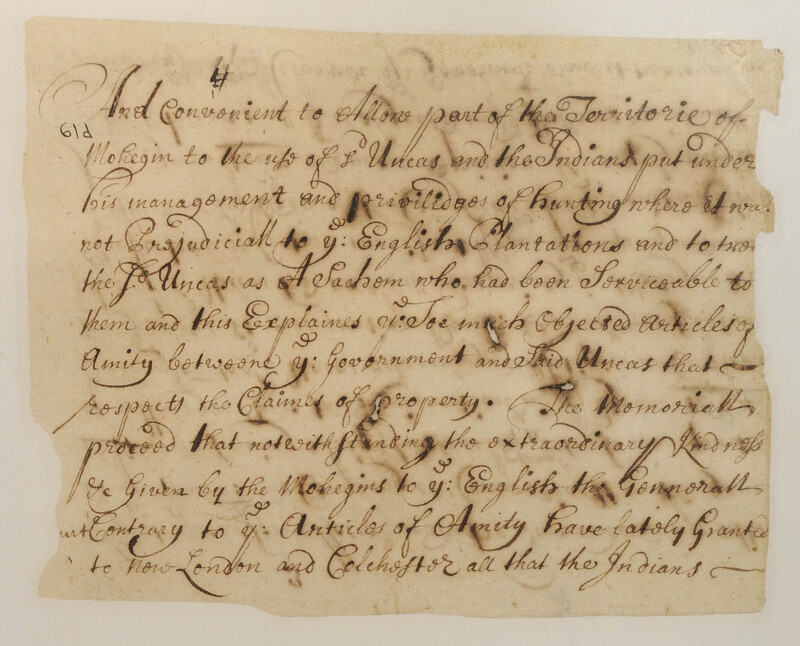 4
p19
And Convenient to Allow part of the Territorie of
Mohegin to the use of sd Uncas and the Indians put under
his management and privilidges of hunting where it was
not Prejudiciall to ye: English Plantations and to treat
the sd. Uncas as A Sachem who had been Serviceable to
them and this Explaines ye: Soe much Objected Articles of
Amity betweene ye: Government and Said Uncas that
respects the Claimes of property. The Memoriall
proceed that notwithstanding the extraordinary Kindness
&c Given by the Mohegins to ye: English the Gennerall
Contrary to ye: Articles of Amity have lately Granted
to New London and Colchester all that the Indians